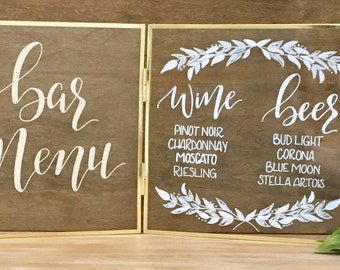 bar
Menu
wine
PINOT NOIR
CHARDONNAY
MOSCATO
RIESLING
beer
BUD LIGHT
CORONA
BLUE MOON
STELLA ARTOIS